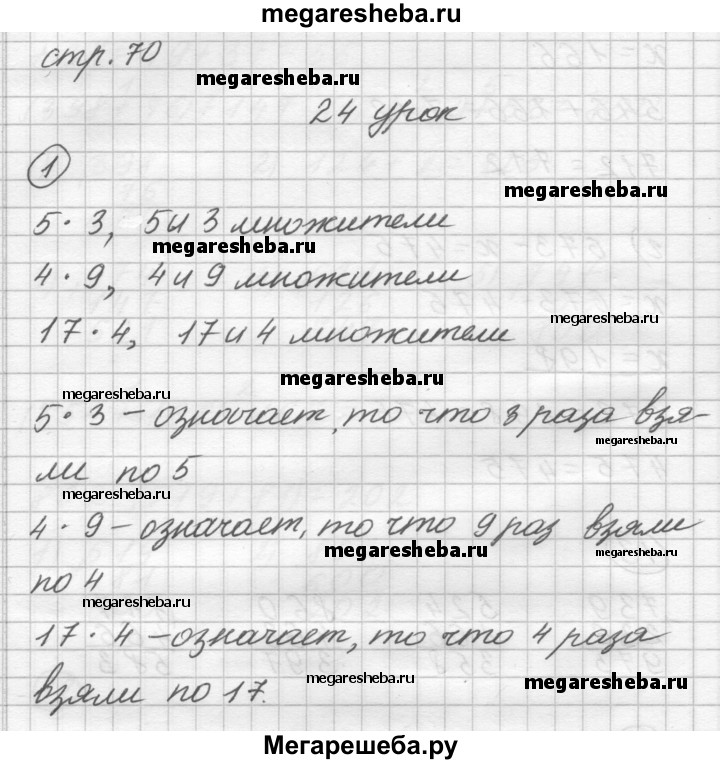 megaresheba.ru
стр. 70
megaresheba.ru
24 урок
1
megaresheba.ru
5 · 3, 5 и 3 множители
megaresheba.ru
4 · 9, 4 и 9 множители
megaresheba.ru
17 · 4, 17 и 4 множители
megaresheba.ru
megaresheba.ru
5 · 3 – означает, то что 3 раза взя-
megaresheba.ru
ли по 5
megaresheba.ru
4 · 9 – означает, то что 9 раз взяли
megaresheba.ru
megaresheba.ru
по 4
megaresheba.ru
17 · 4 – означает, то что 4 раза
взяли по 17.
megaresheba.ru
megaresheba.ru
Мегарешеба.ру